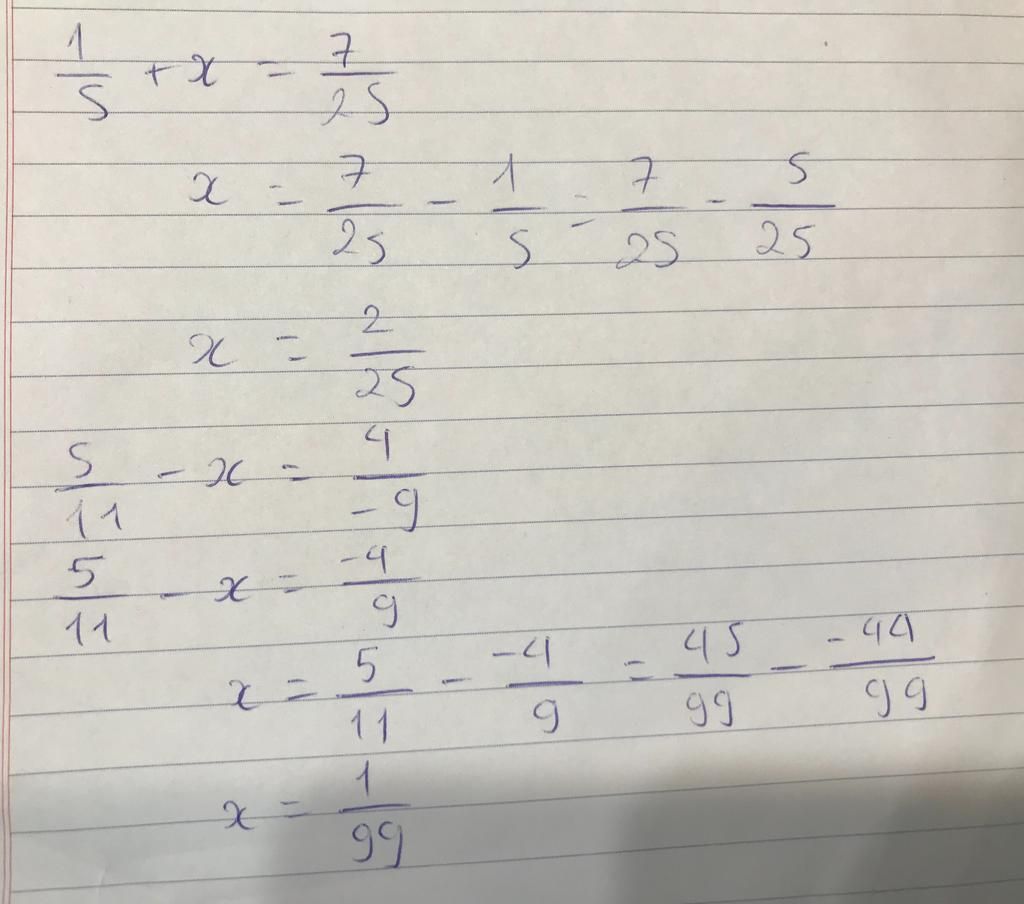 1/5 + x = 7/25
x = 7/25 - 1/5 = 7/25 - 5/25
x = 2/25
5/11 - x = 4/-9
5/11 - x = -4/9
x = 5/11 - -4/9 = 45/99 - -44/99
x = 1/99